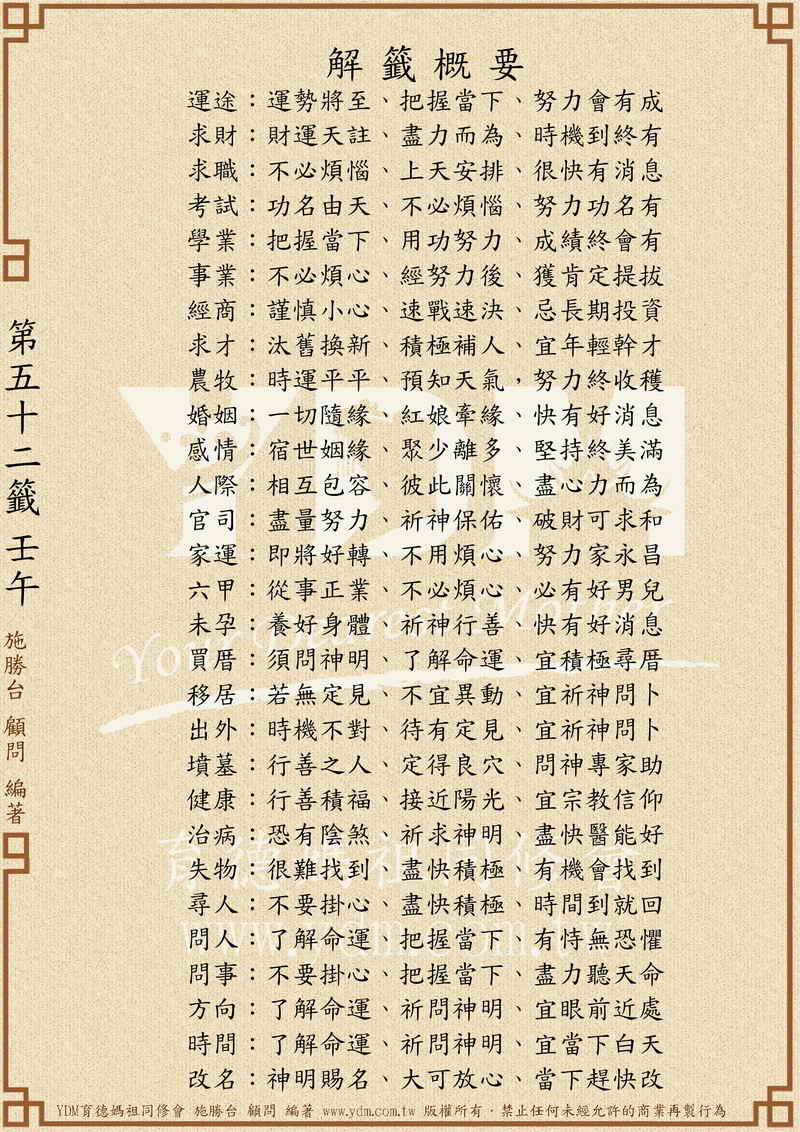 解籤概要
運途：運勢將至、把握當下、努力會有成
求財：財運天註、盡力而為、時機到終有
求職：不必煩惱、上天安排、很快有消息
考試：功名由天、不必煩惱、努力功名有
學業：把握當下、用功努力、成績終會有
事業：不必煩心、經努力後、獲肯定提拔
經商：謹慎小心、速戰速決、忌長期投資
求才：汰舊換新、積極補人、宜年輕幹才
農牧：時運平平、預知天氣，努力終收穫
婚姻：一切隨緣、紅娘牽緣、快有好消息
感情：宿世姻緣、聚少離多、堅持終美滿
人際：相互包容、彼此關懷、盡心力而為
官司：盡量努力、祈神保佑、破財可求和
家運：即將好轉、不用煩心、努力家永昌
六甲：從事正業、不必煩心、必有好男兒
未孕：養好身體、祈神行善、快有好消息
買厝：須問神明、了解命運、宜積極尋厝
移居：若無定見、不宜異動、宜祈神問卜
出外：時機不對、待有定見、宜祈神問卜
墳墓：行善之人、定得良穴、問神專家助
健康：行善積福、接近陽光、宜宗教信仰
治病：恐有陰煞、祈求神明、盡快醫能好
失物：很難找到、盡快積極、有機會找到
尋人：不要掛心、盡快積極、時間到就回
問人：了解命運、把握當下、有恃無恐懼
問事：不要掛心、把握當下、盡力聽天命
方向：了解命運、祈問神明、宜眼前近處
時間：了解命運、祈問神明、宜當下白天
改名：神明賜名、大可放心、當下趕快改
第五十二籤 壬午
施勝台 顧問 編著
YDM
Your Dearest Mother
育德媽祖同修會
www.ydm.com.tw
YDM育德媽祖同修會 施勝台 顧問 編著 www.ydm.com.tw 版權所有．禁止任何未經允許的商業再製行為